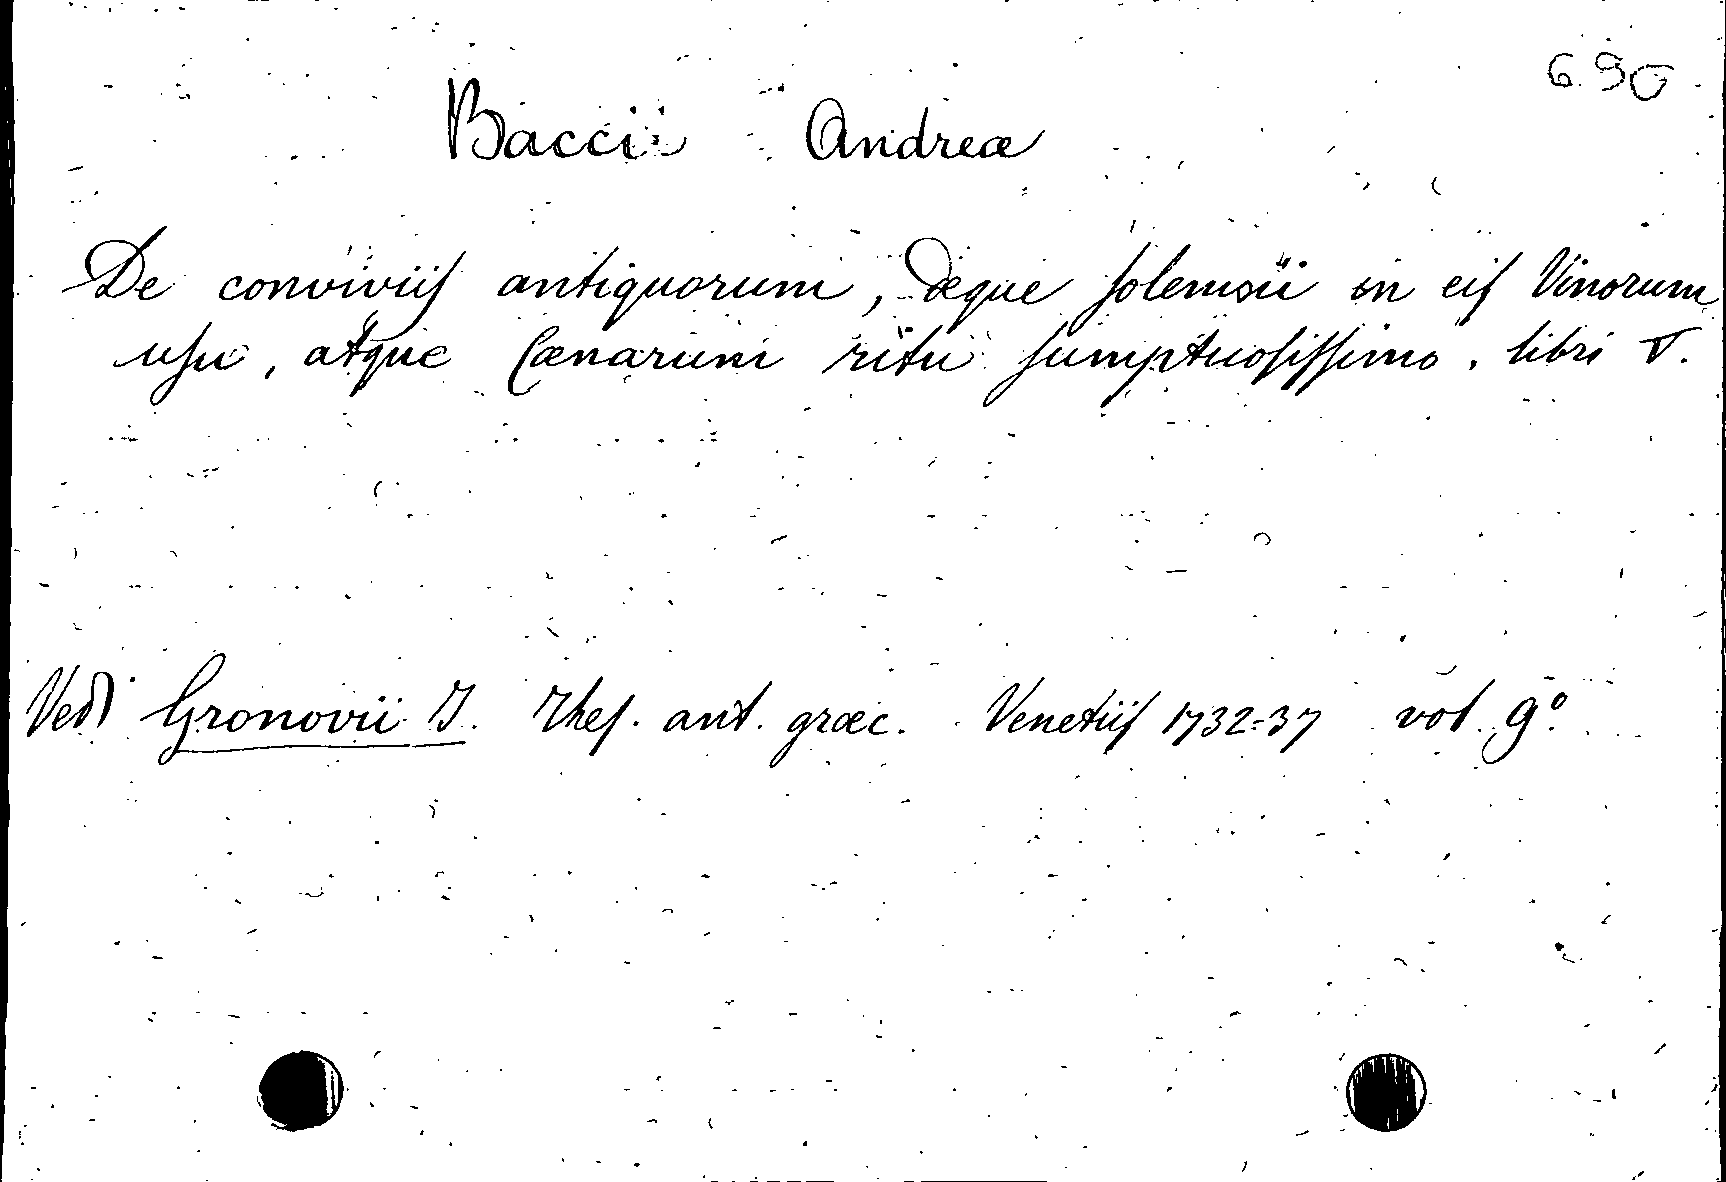 690
Baccii Andreæ
De conviviiſ antiquorum, deque ſolemnii in eiſ Vinorum
uſu, atque Cœnarum ritu ſumptuoſiſſimo. libri V.
Vedi Gronovii J. Theſ. ant. græc. Venetiiſ 1732-37 vol. 9º